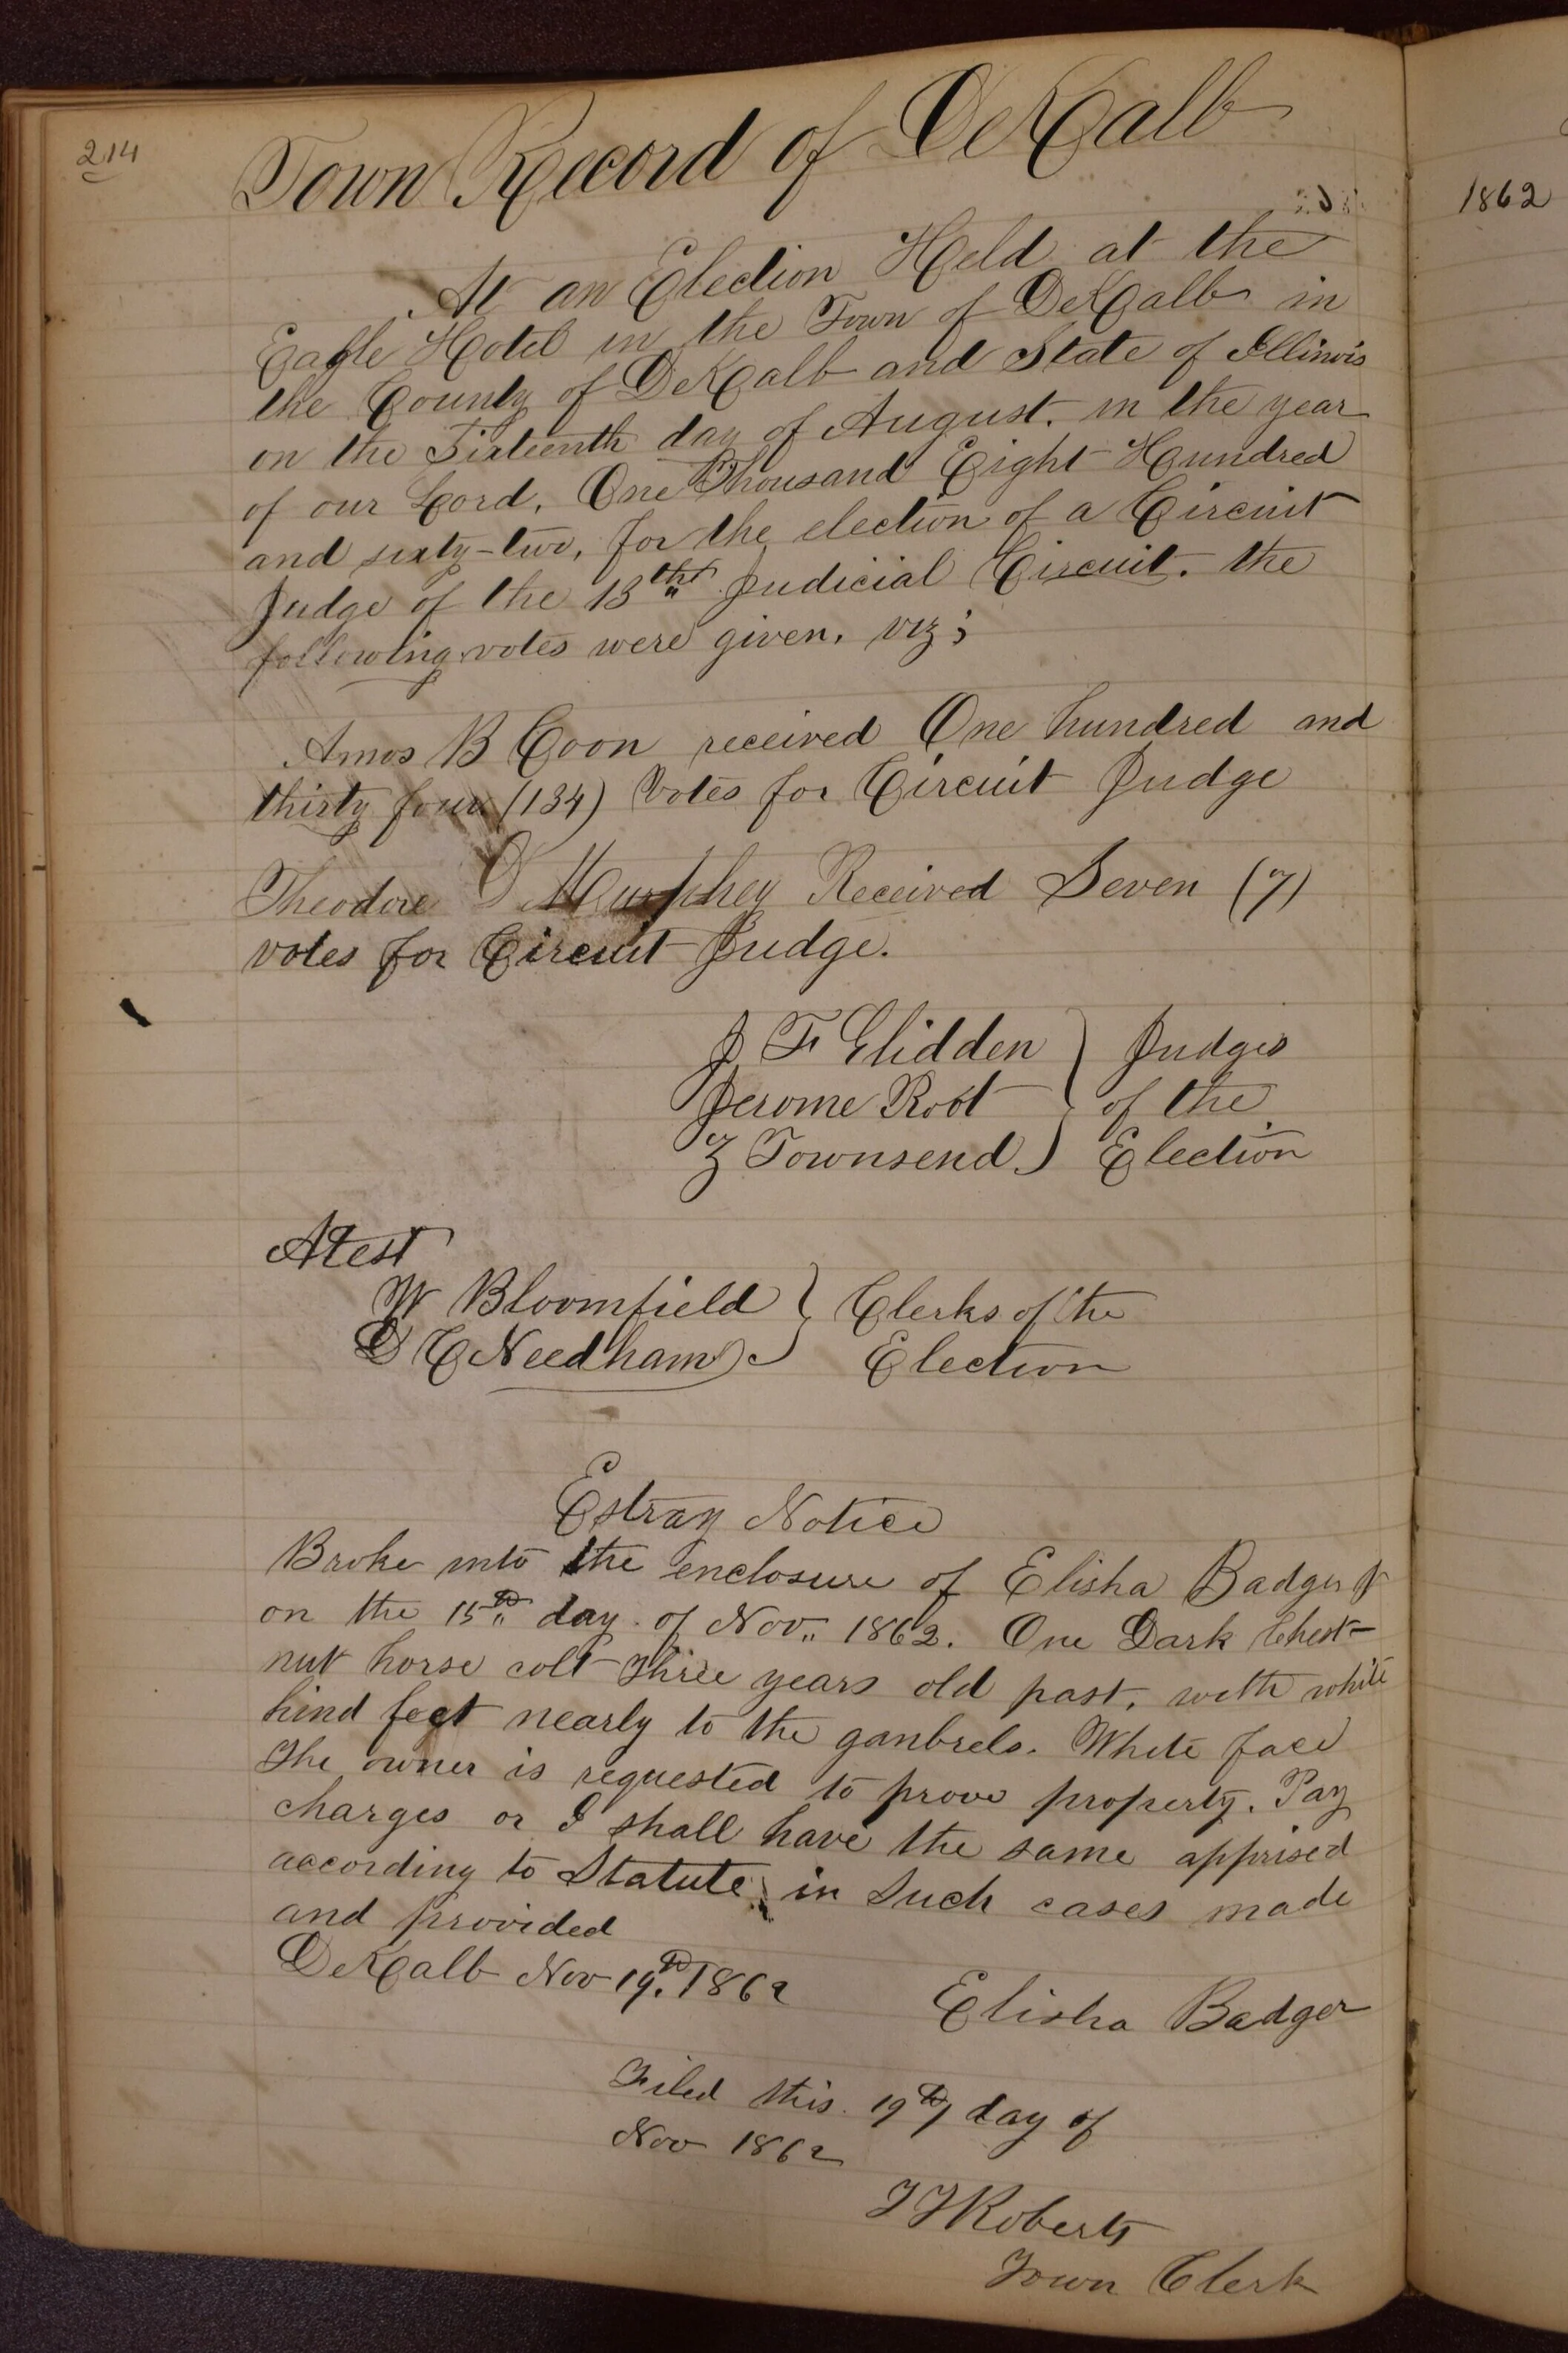 214
Town Record of DeKalb
At an Election Held at the
Eagle Hotel in the Town of DeKalb in
the County of DeKalb and State of Illinois
on the Sixteenth day of August. in the year
of our Lord, One Thousand Eight Hundred
and sixty-two, for the election of a Circuit
Judge of the 13th Judicial Circuit. the
following votes were given, viz;
Amos B Coon received One hundred and
thirty four (134) Votes for Circuit Judge
Theodore D Murphey Received Seven (7)
votes for Circuit Judge.
J F Glidden } Judges
Jerome Root } of the
Z Townsend } Election
Atest
W Bloomfield } Clerks of the
D C Needham } Election
Estray Notice
Broke into the enclosure of Elisha Badger
on the 15th day of Nov. 1862. One Dark Chest-
nut horse colt three years old past, with white
hind feet nearly to the gambrels. White face
The owner is requested to prove property. Pay
charges or I shall have the same apprised
according to Statute in Such cases made
and provided
DeKalb Nov 19th 1862
Elisha Badger
Filed this 19th day of
Nov 1862
T J Roberts
Town Clerk
1862